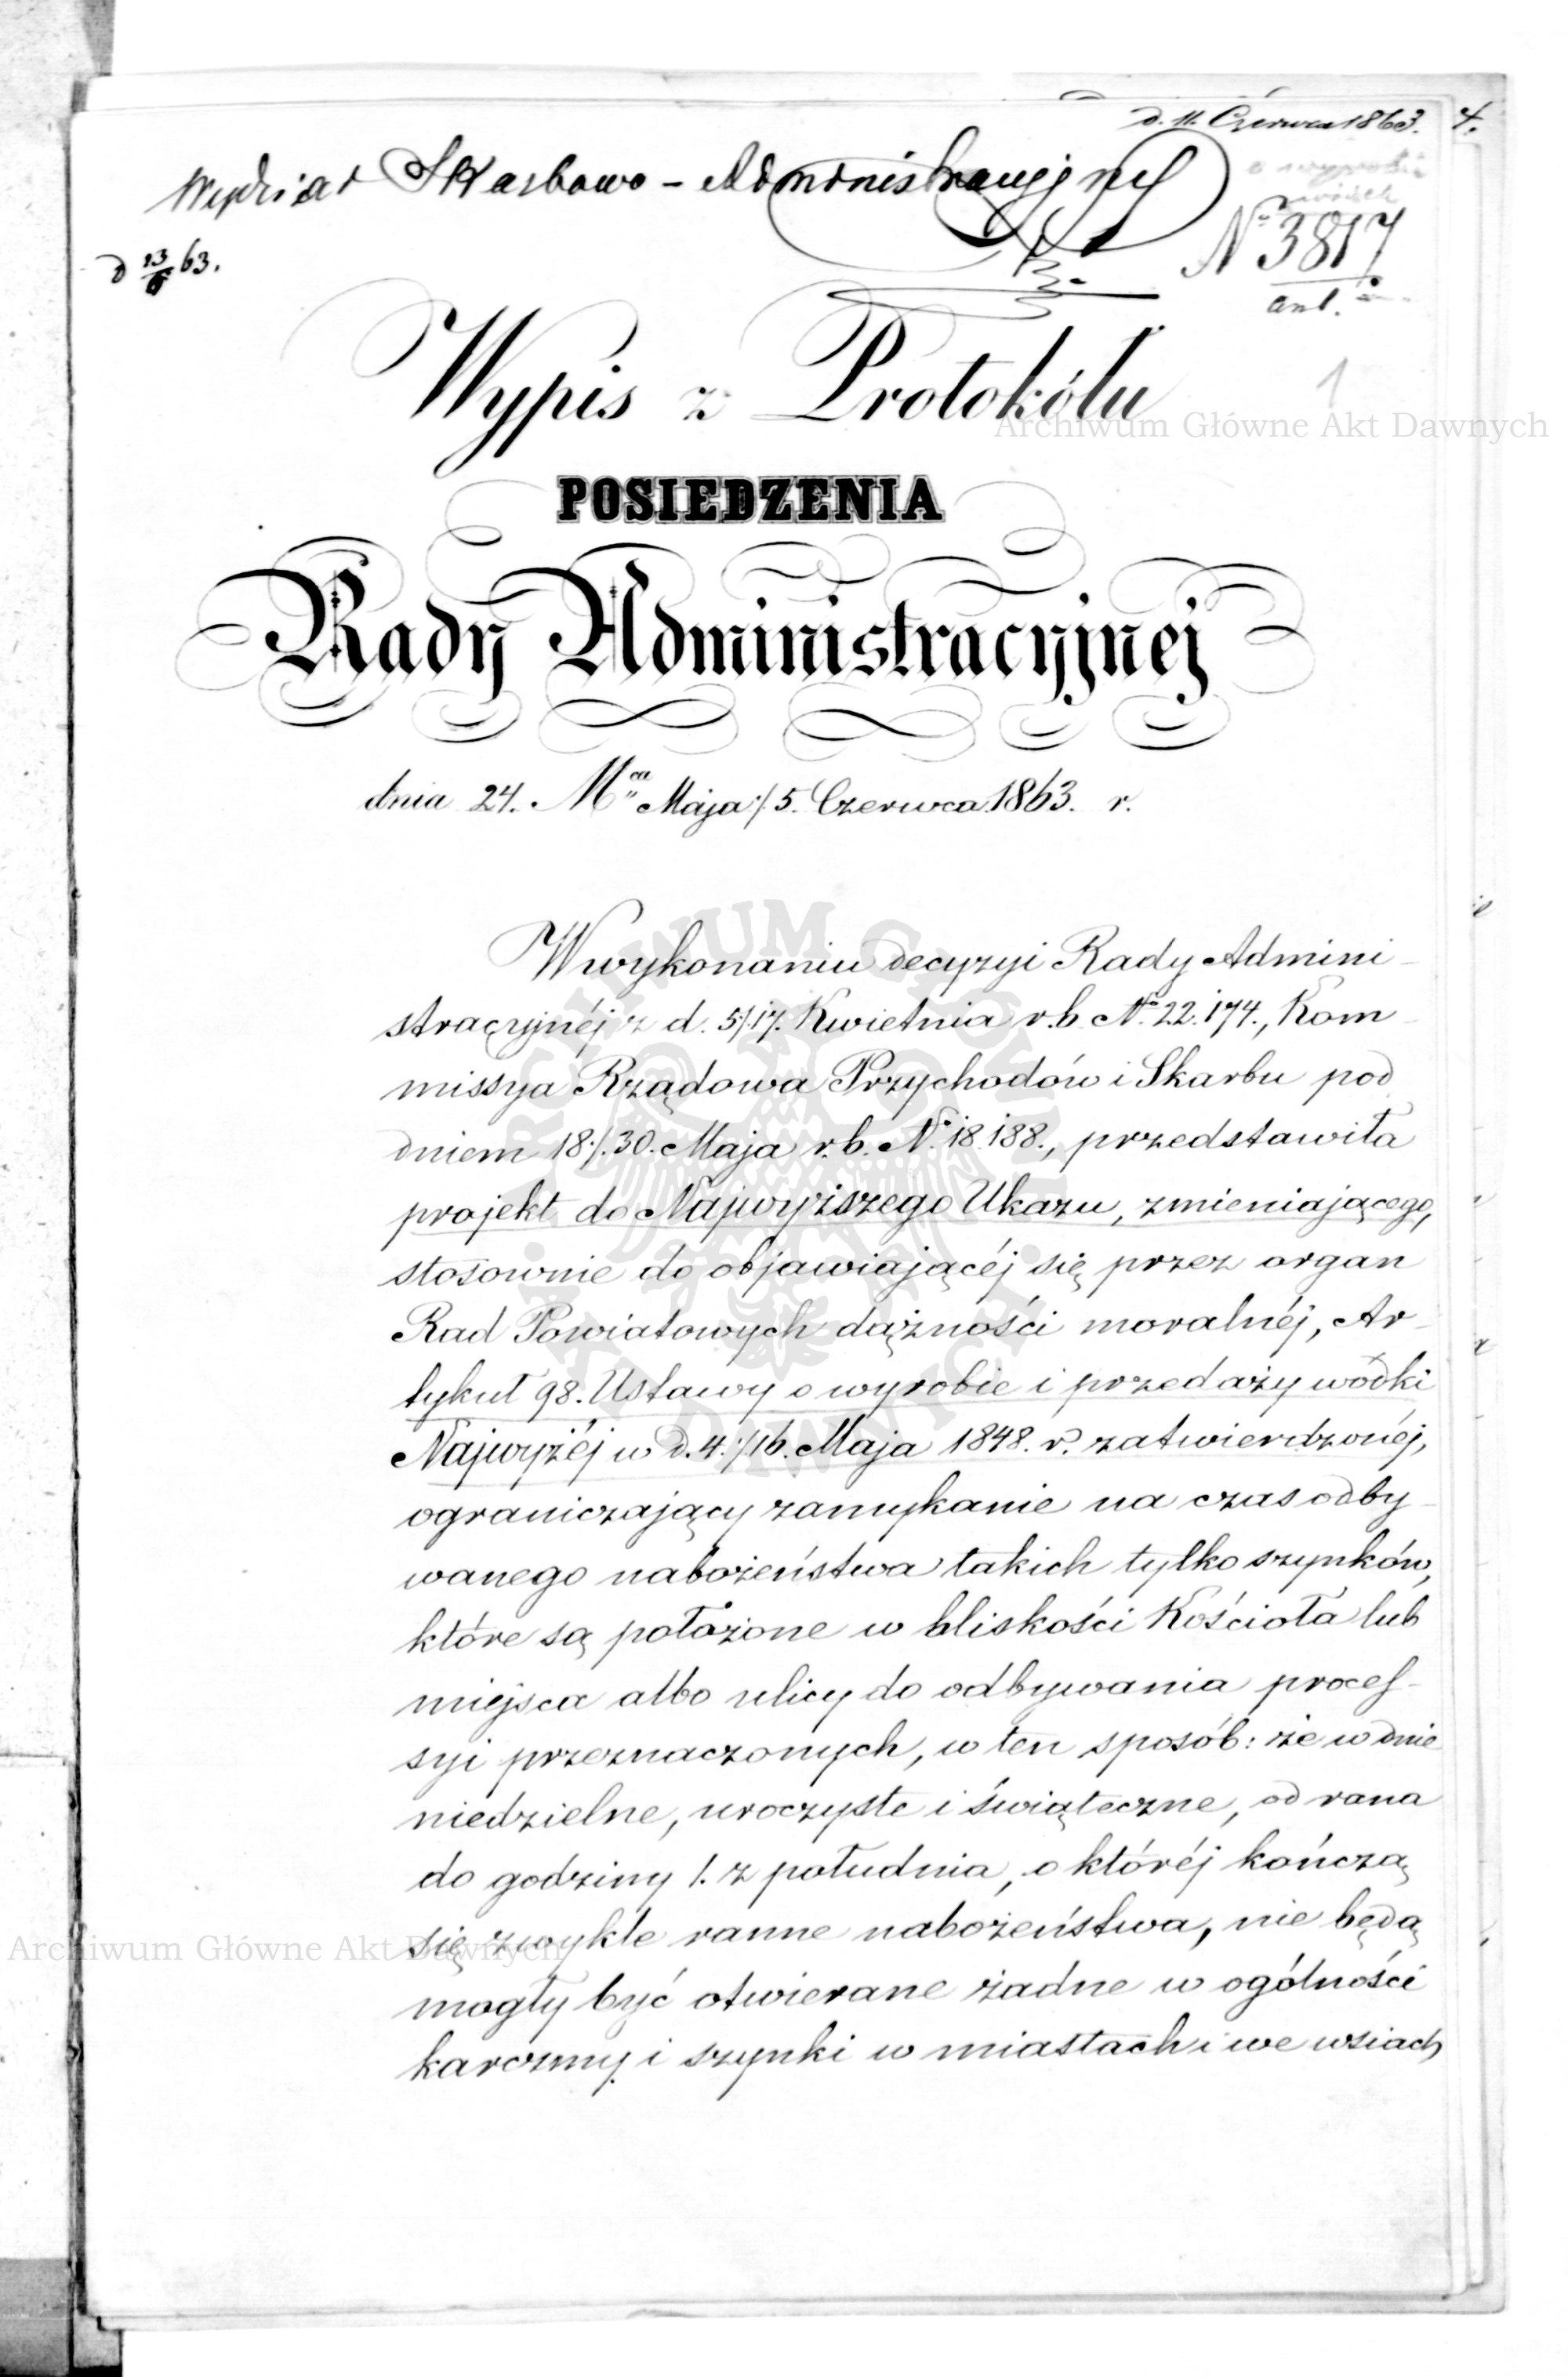 d. 11. Czerwca 1863. 4.
Wydział Skarbowo-Administracyjny
o wyrobie
wódek
Nº 3817
d 13/6 63.
Wypis z Protokółu
1
Archiwum Główne Akt Dawnych
POSIEDZENIA
Rady Administracyjnej
dnia 24. Mca Maja ./5. Czerwca 1863. r.
W wykonaniu decyzyi Rady Admini-
stracyjnéj z d. 5./17. Kwietnia r.b. Nº 22.174., Kom-
missya Rządowa Przychodów i Skarbu pod
dniem 18./.30. Maja r.b. Nº 18.188., przedstawiła
projekt do Najwyższego Ukazu, zmieniającego,
stosownie do objawiającéj się przez organ
Rad Powiatowych dążności moralnéj, Ar-
tykuł 98. Ustawy o wyrobie i przedaży wódki
Najwyżéj w d. 4./16. Maja 1848. r. zatwierdzonéj,
ograniczający zamykanie na czas odby-
wanego nabożeństwa takich tylko szynków,
które są położone w bliskości Kościoła lub
miejsca albo ulicy do odbywania proces-
syi przeznaczonych, w ten sposób: że w dnie
niedzielne, uroczyste i świąteczne, od rana
do godziny 1. z południa, o któréj kończą
się zwykle ranne nabożeństwa, nie będą
Archiwum Główne Akt Dawnych
mogły być otwierane żadne w ogólności
karczmy i szynki w miastach i we wsiach
ARCHIWUM GŁÓWNE AKT DAWNYCH